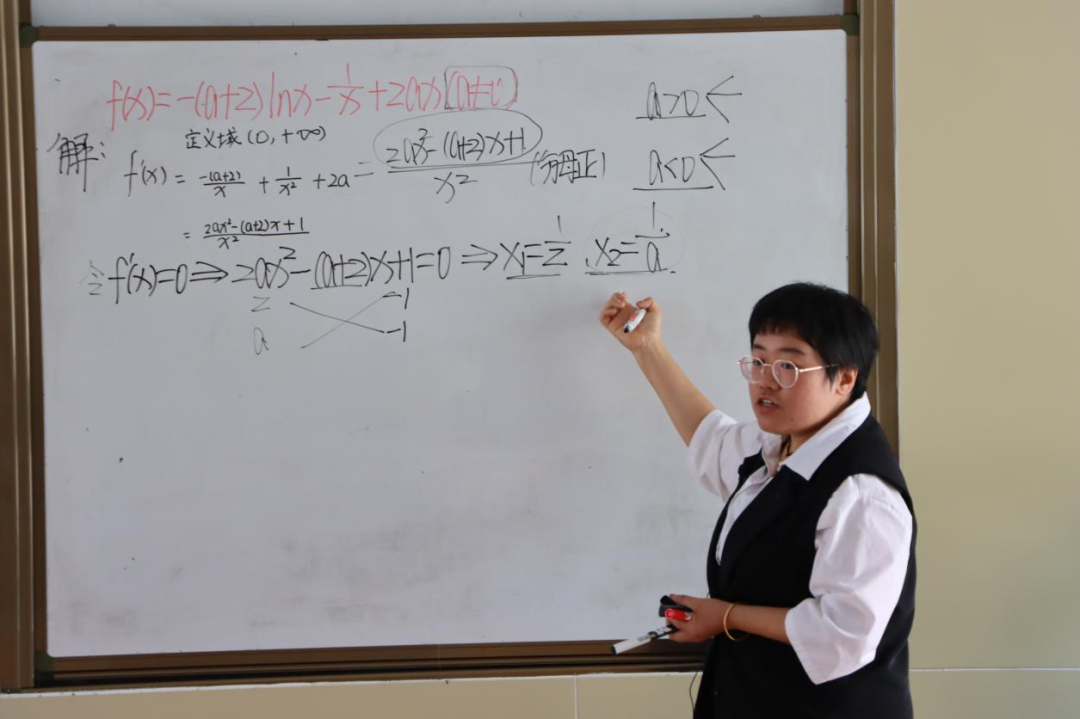 f(x)=-(a+2)lnx-1/x+2ax(a≠0)
解:
定义域(0,+∞)
f'(x)=-(a+2)/x+1/x²+2a=2ax²-(a+2)x+1/x² (分母正)
=2ax²-(a+2)x+1/x²
令f'(x)=0⇒2ax²-(a+2)x+1=0⇒x₁=1/2.x₂=1/a.
2 -1
a -1
a>0←
a<0←